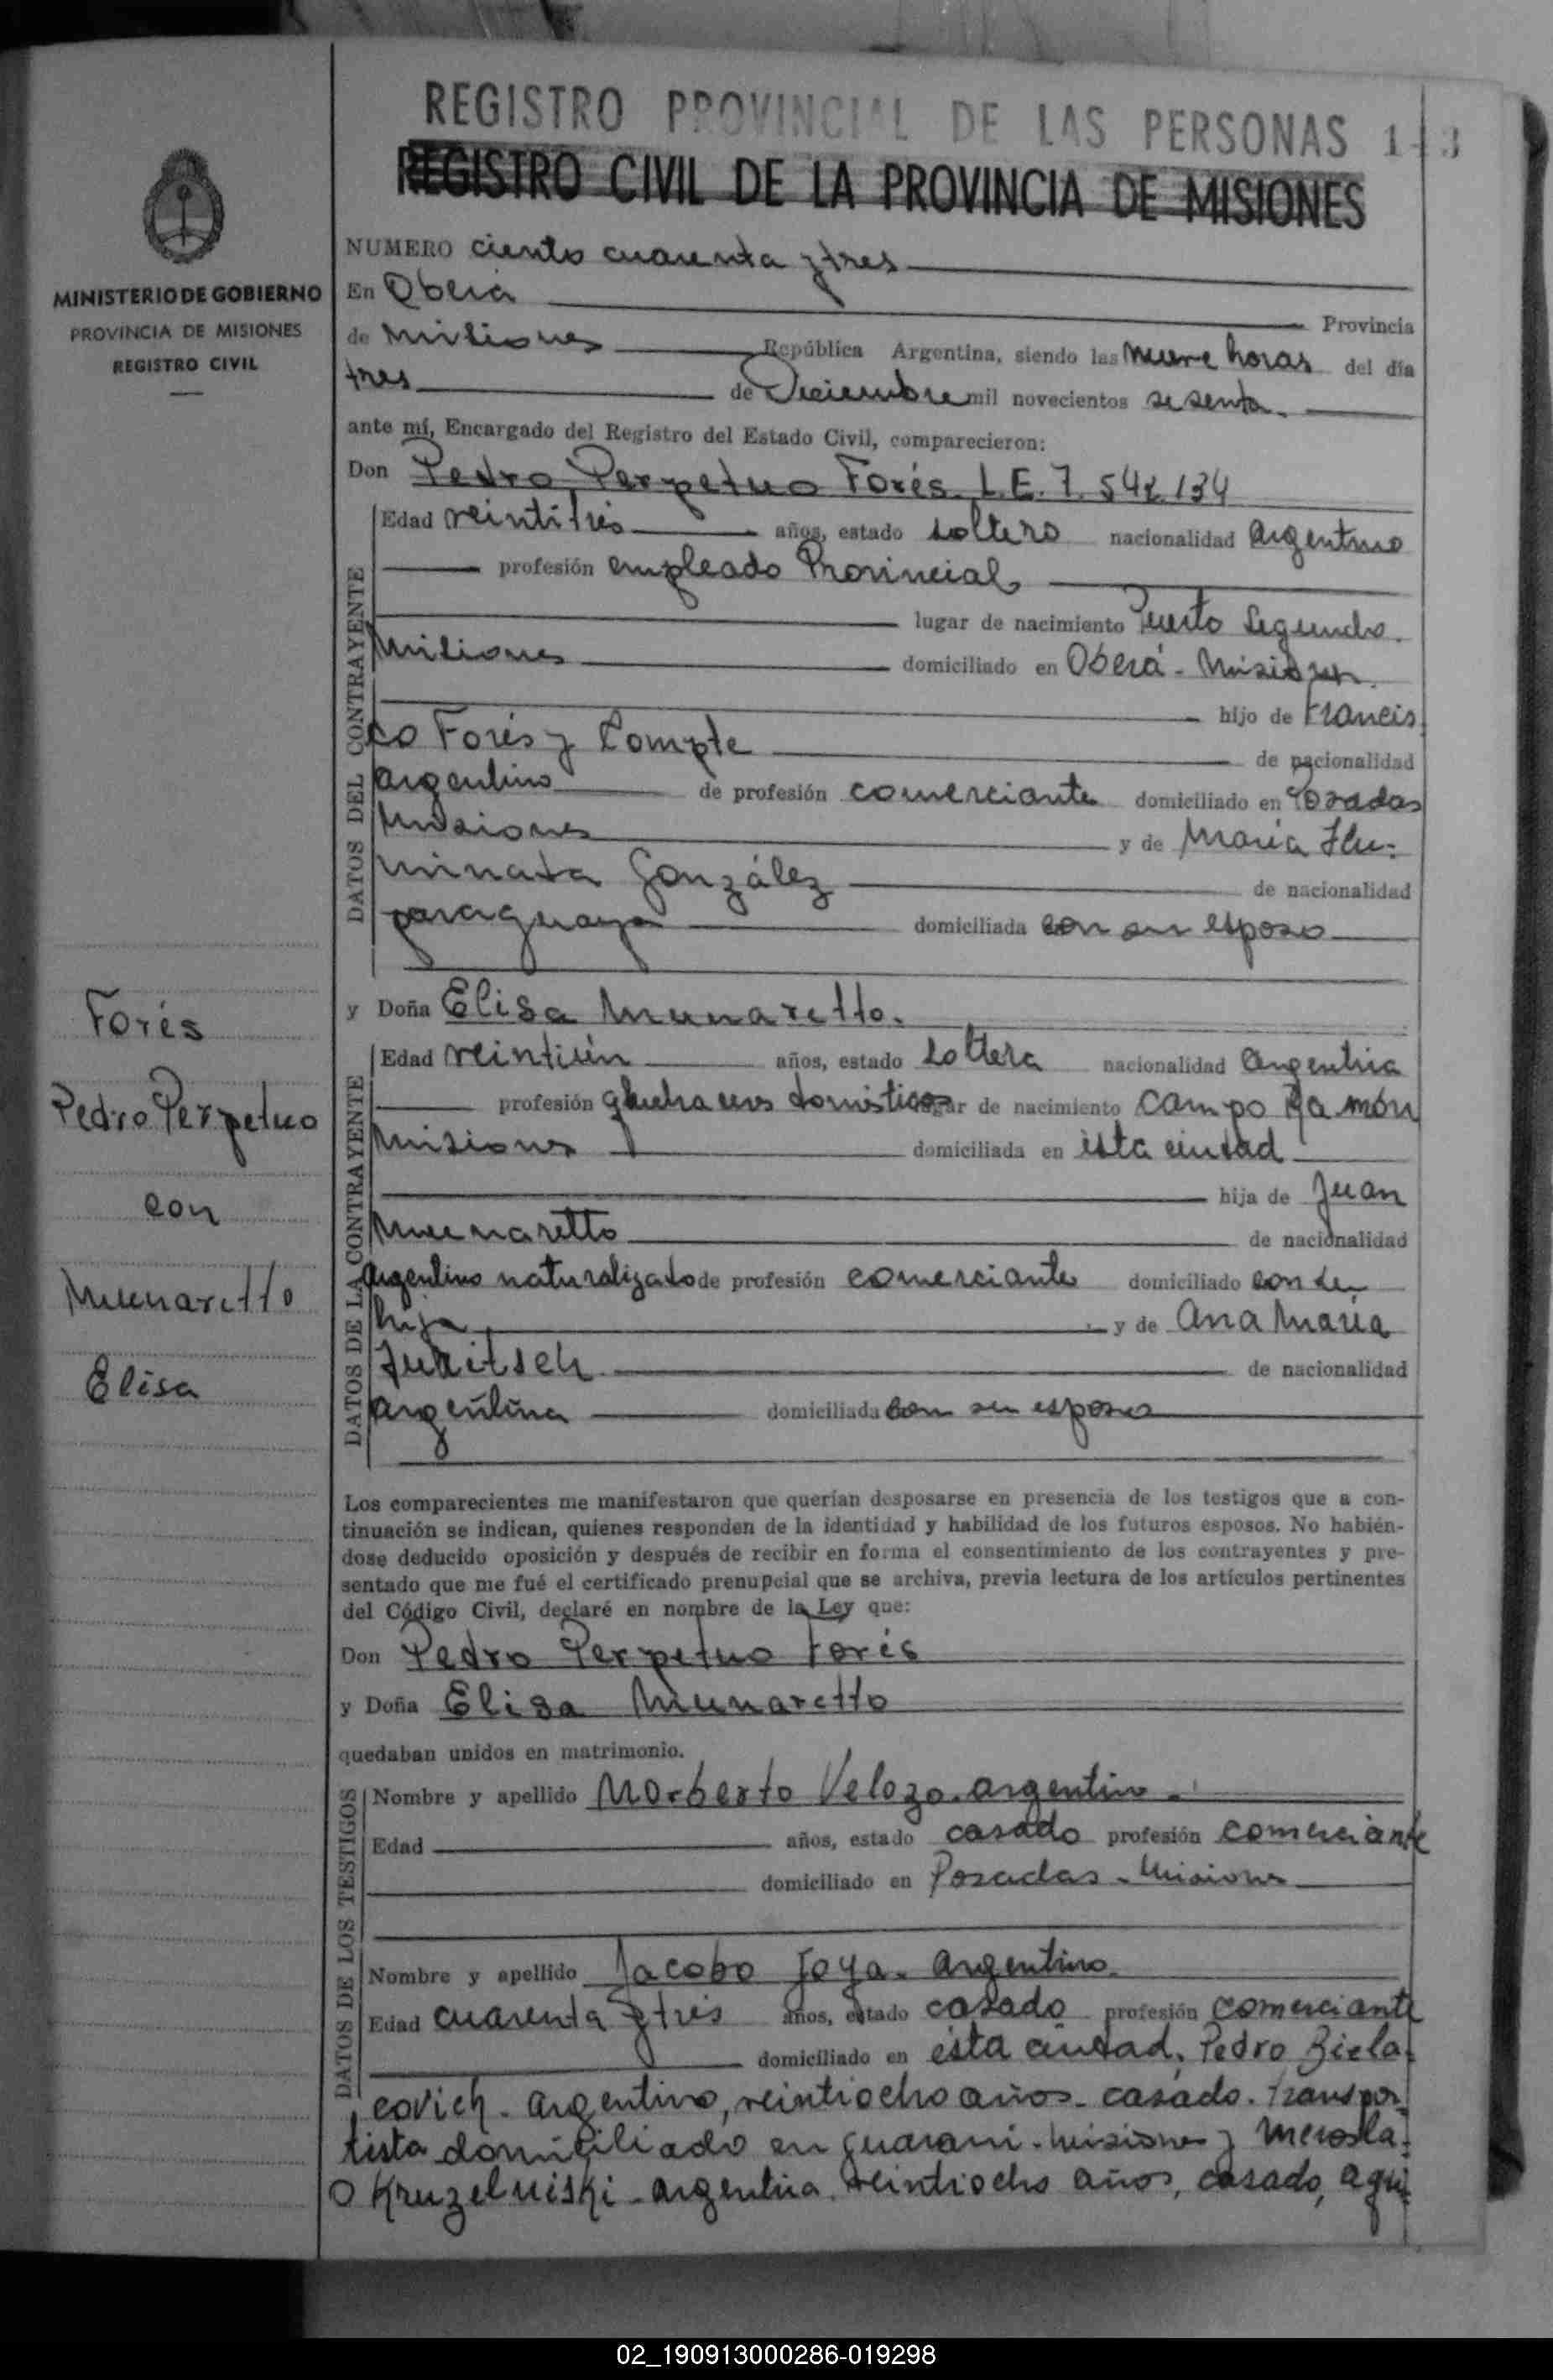 REGISTRO PROVINCIAL DE LAS PERSONAS
REGISTRO CIVIL DE LA PROVINCIA DE MISIONES
MINISTERIO DE GOBIERNO
PROVINCIA DE MISIONES
REGISTRO CIVIL
Forés
Pedro Perpetuo
con
Munaretto
Elisa
NUMERO ciento cuarenta y tres
En Oberá Provincia
de Misiones República Argentina, siendo las nueve horas del día
tres de Diciembre mil novecientos sesenta.
ante mí, Encargado del Registro del Estado Civil, comparecieron:
Don Pedro Perpetuo Forés. L.E. 7.542.134
DATOS DEL CONTRAYENTE
Edad veintitrés años, estado soltero nacionalidad argentino
profesión empleado Provincial
lugar de nacimiento Puerto Segundo.
Misiones domiciliado en Oberá - Misiones.
hijo de Francis
co Forés y Compte de nacionalidad
argentino de profesión comerciante domiciliado en Posadas
Misiones y de María Ilu-
minada González de nacionalidad
paraguaya domiciliada con su esposo
y Doña Elisa Munaretto.
DATOS DE LA CONTRAYENTE
Edad veintiún años, estado soltera nacionalidad argentina
profesión domésticos lugar de nacimiento Campo Ramón
Misiones domiciliada en ésta ciudad
hija de Juan
Munaretto de nacionalidad
argentino naturalizado de profesión comerciante domiciliado con su
hija y de Ana María
de nacionalidad
argentina domiciliada con su esposo
Los comparecientes me manifestaron que querían desposarse en presencia de los testigos que a con-
tinuación se indican, quienes responden de la identidad y habilidad de los futuros esposos. No habién-
dose deducido oposición y después de recibir en forma el consentimiento de los contrayentes y pre-
sentado que me fué el certificado prenupcial que se archiva, previa lectura de los artículos pertinentes
del Código Civil, declaré en nombre de la Ley que:
Don Pedro Perpetuo Forés
y Doña Elisa Munaretto
quedaban unidos en matrimonio.
DATOS DE LOS TESTIGOS
Nombre y apellido Norberto Velozo. argentino.
Edad años, estado casado profesión comerciante
domiciliado en Posadas - Misiones
Nombre y apellido Jacobo Joya. argentino.
Edad cuarenta y tres años, estado casado profesión comerciante
domiciliado en ésta ciudad. Pedro Biela-
covich. argentino, veintiocho años. casado. transpor-
tista domiciliado en Guaraní. Misiones y
argentina. veintiocho años, casado, agri-
02_190913000286-019298